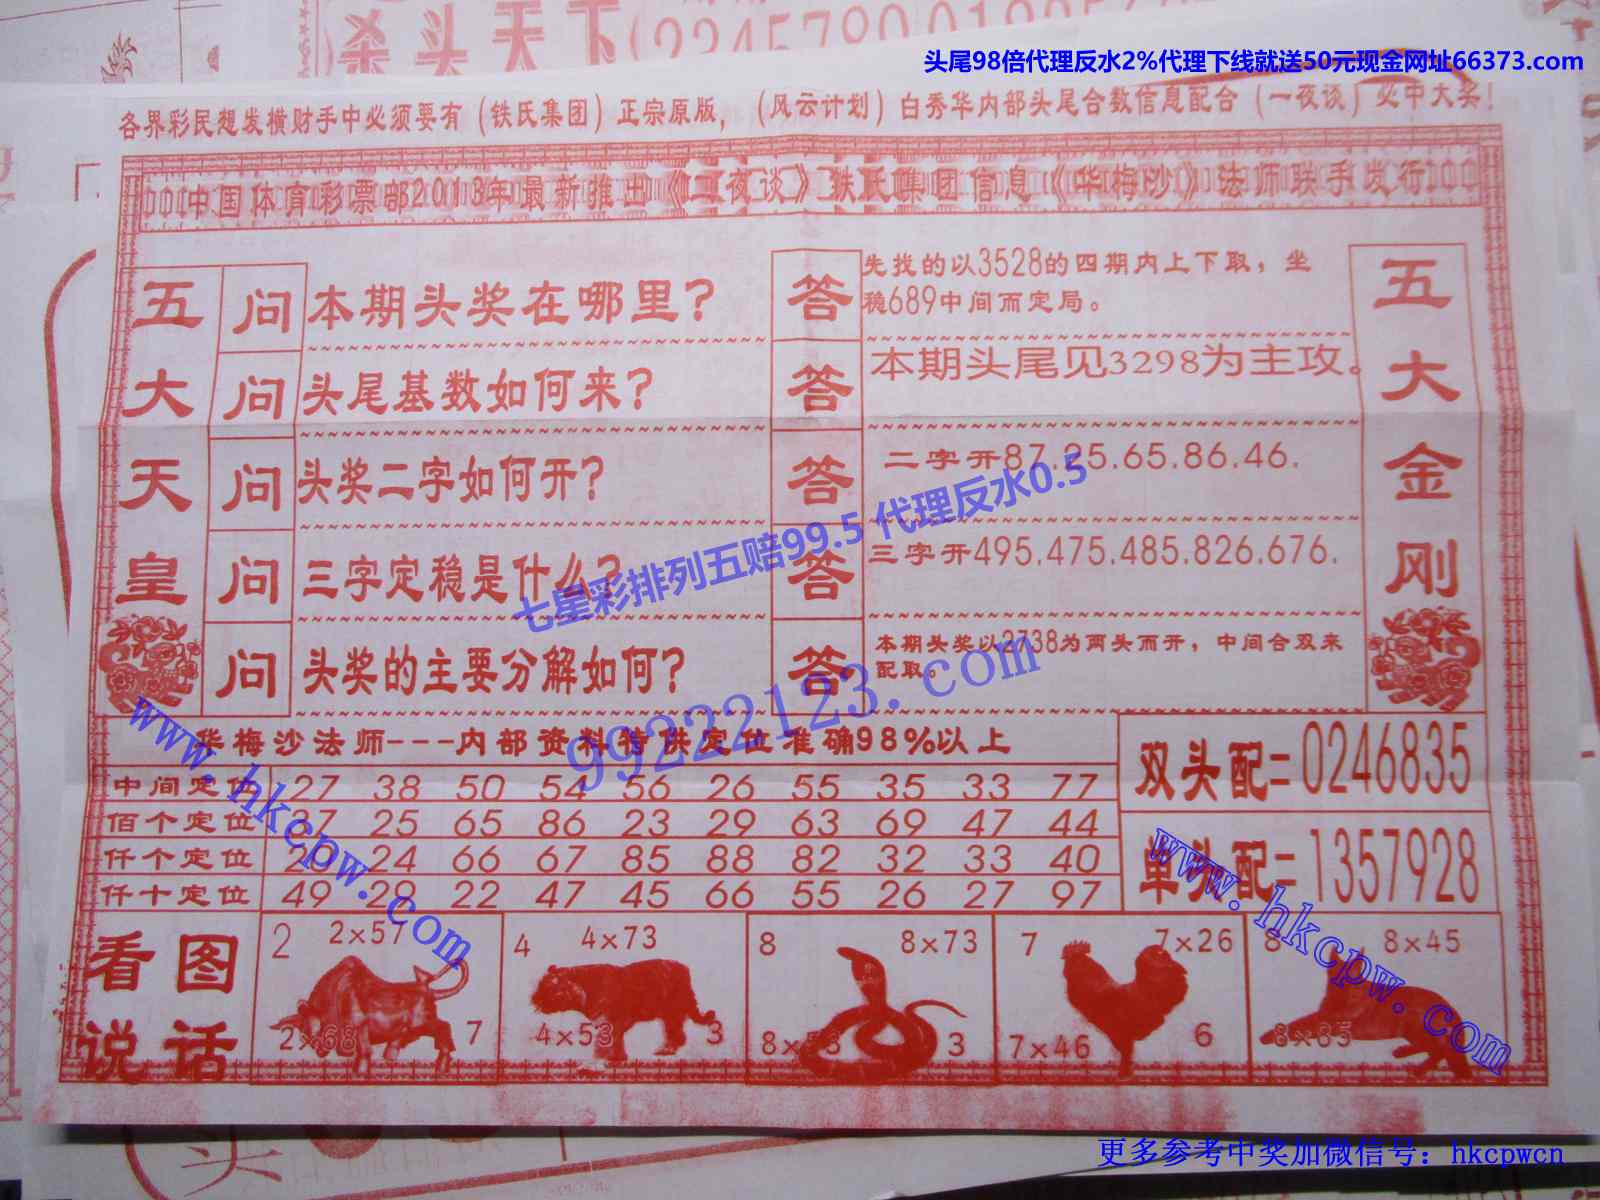 杀头天下(2245789019856
头尾98倍代理反水2%代理下线就送50元现金网址66373.com
各界彩民想发横财手中必须要有（铁氏集团）正宗原版，（风云计划）白秀华内部头尾合数信息配合（一夜谈）必中大奖！
中国体育彩票部2013年最新推出《一夜谈》铁氏集团信息《华梅沙》法师联手发行
五大天皇
问 本期头奖在哪里？
答 先找的以3528的四期内上下取，坐
稳689中间而定局。
问 头尾基数如何来？
答 本期头尾见3298为主攻。
问 头奖二字如何开？
答 二字开87.25.65.86.46.
问 三字定稳是什么？
答 三字开495.475.485.826.676.
问 头奖的主要分解如何？
答 本期头奖以2738为两头而开，中间合双来
配取。
五大金刚
七星彩排列五赔99.5 代理反水0.5
99222123.com
www.hkcpw.com
华梅沙法师---内部资料特供定位准确98%以上
中间定位 27 38 50 54 56 26 55 35 33 77
佰个定位 27 25 65 86 23 29 63 69 47 44
仟个定位 20 24 66 67 85 88 82 32 33 40
仟十定位 49 29 22 47 45 66 55 26 27 97
双头配=0246835
单头配=1357928
www.hkcpw.com
看图
说话
2 2×57
2×68 7
4 4×73
4×53 3
8 8×73
8×53 3
7 7×26
7×46 6
8 8×45
8×85
更多参考中奖加微信号：hkcpwcn